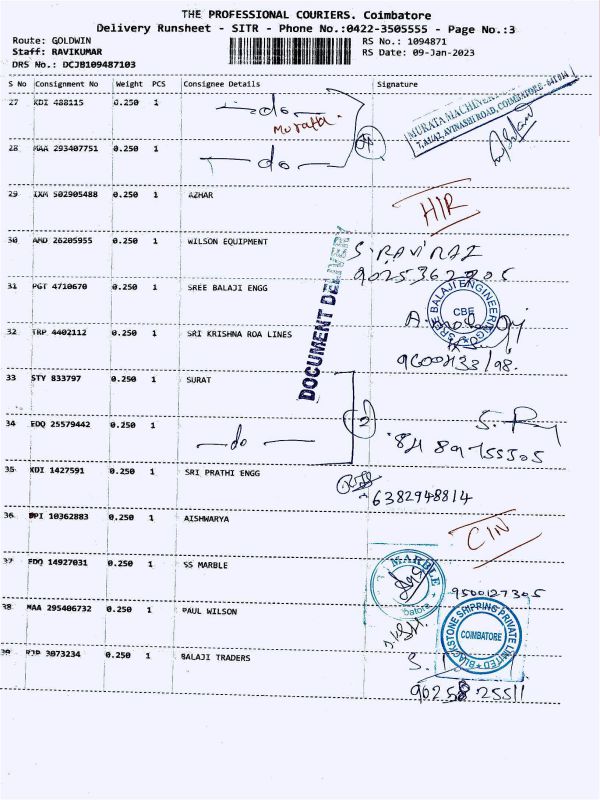 THE PROFESSIONAL COURIERS. Coimbatore
Delivery Runsheet - SITR - Phone No.:0422-3505555 - Page No.:3
Route: GOLDWIN
RS No.: 1094871
Staff: RAVIKUMAR
RS Date: 09-Jan-2023
DRS No.: DCJB109487103
S No Consignment No Weight PCS Consignee Details Signature
27 KDI 488115 0.250 1 - do -
Murata
MURATA MACHINERY
AVINASHI ROAD, COIMBATORE - 641 014
28 MAA 293407751 0.250 1 - do -
29 IXM 502905488 0.250 1 AZHAR HIR
30 AMD 26205955 0.250 1 WILSON EQUIPMENT S. RAVI RAJ
9025362205
31 PGT 4710670 0.250 1 SREE BALAJI ENGG
SREE BALAJI ENGINEERING
CBE
32 TRP 4402112 0.250 1 SRI KRISHNA ROA LINES
DOCUMENT DELIVERY
33 STY 833797 0.250 1 SURAT
2
34 EDQ 25579442 0.250 1 - do -
35 KDI 1427591 0.250 1 SRI PRATHI ENGG
6382948814
36 PPI 10362883 0.250 1 AISHWARYA CIN
37 EDQ 14927031 0.250 1 SS MARBLE
MARBLE
9500127305
38 MAA 295406732 0.250 1 PAUL WILSON
BLACKSTONE SHIPPING PRIVATE LIMITED
COIMBATORE
39 PJP 3073234 0.250 1 BALAJI TRADERS
9025825511